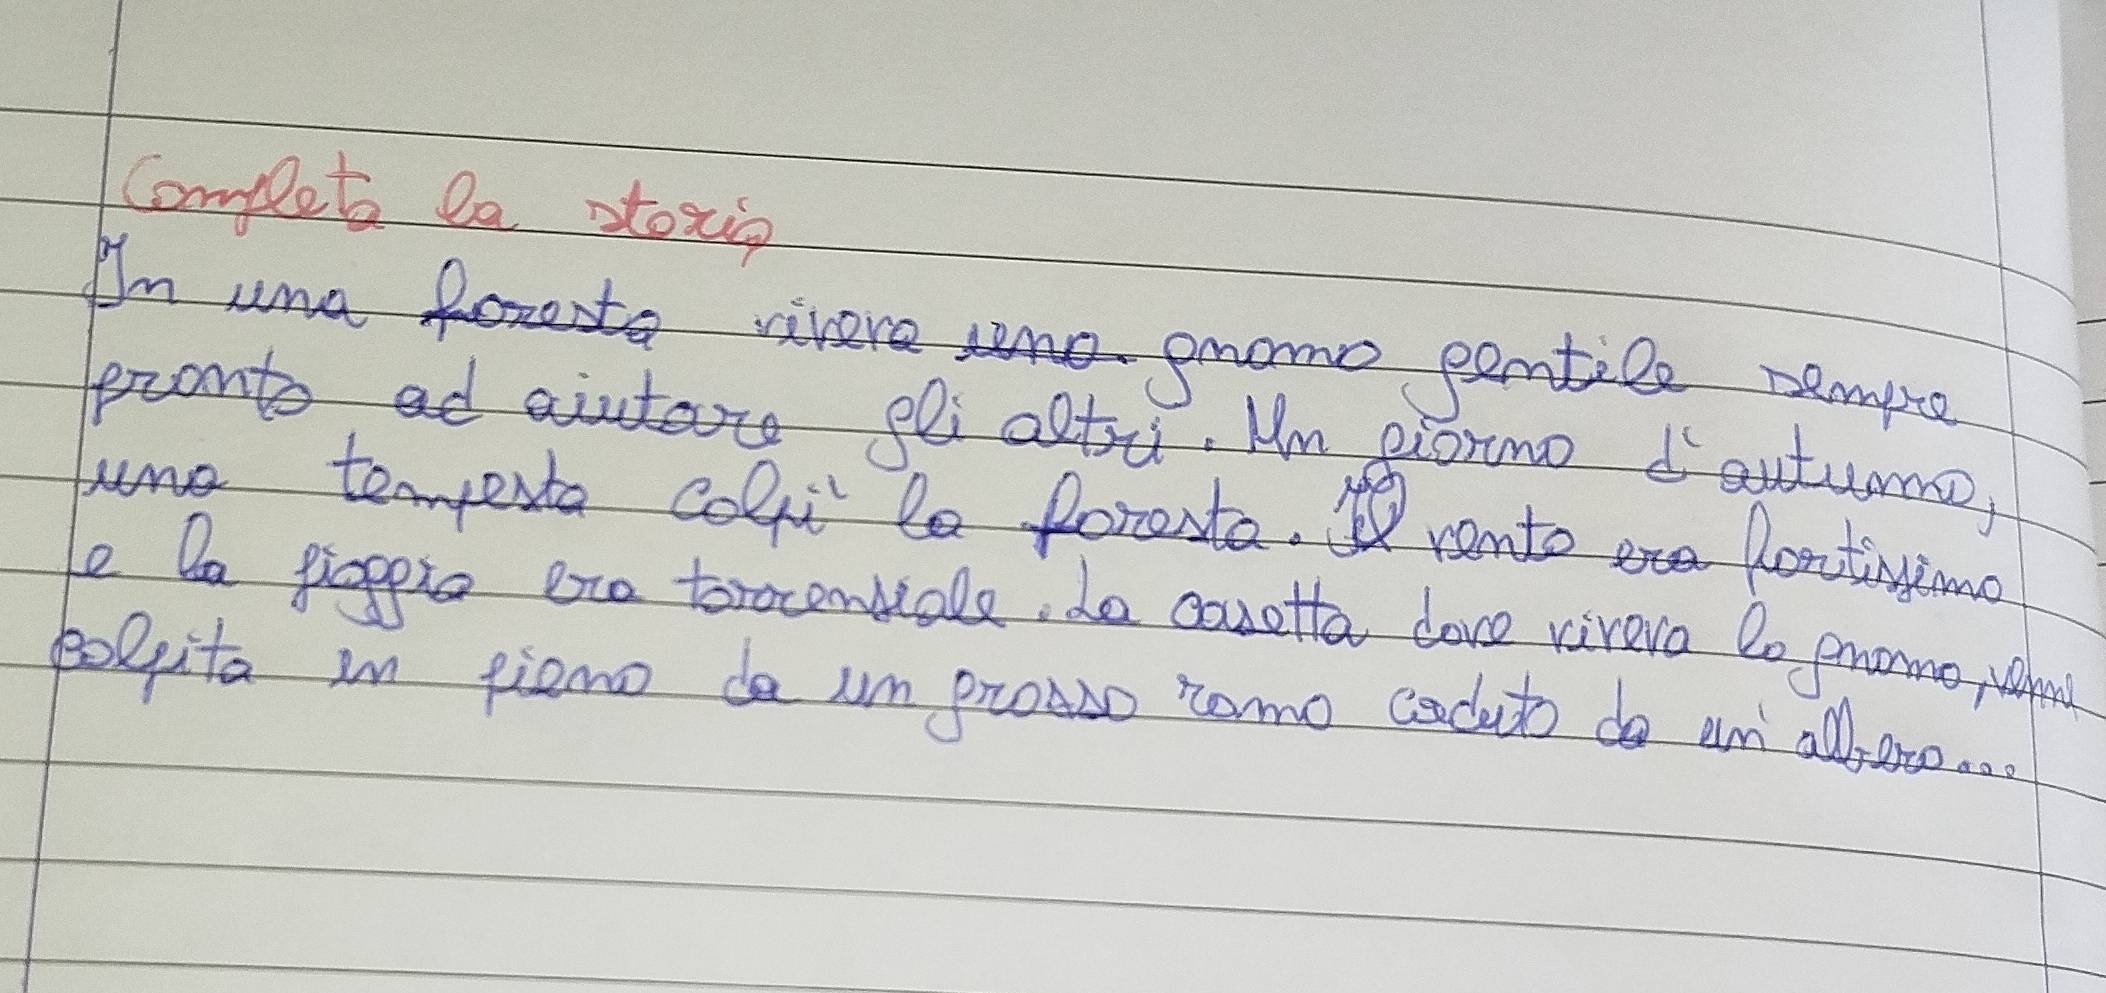 Completa la storia
In una foresta viveva uno gnomo gentile sempre
pronto ad aiutare gli altri. Un giorno d'autunno,
una tempesta colpì la foresta. Il vento era fortissimo
e la pioggia era torrenziale. La casetta dove viveva lo gnomo, venne
colpita in pieno da un grosso ramo caduto da un albero...